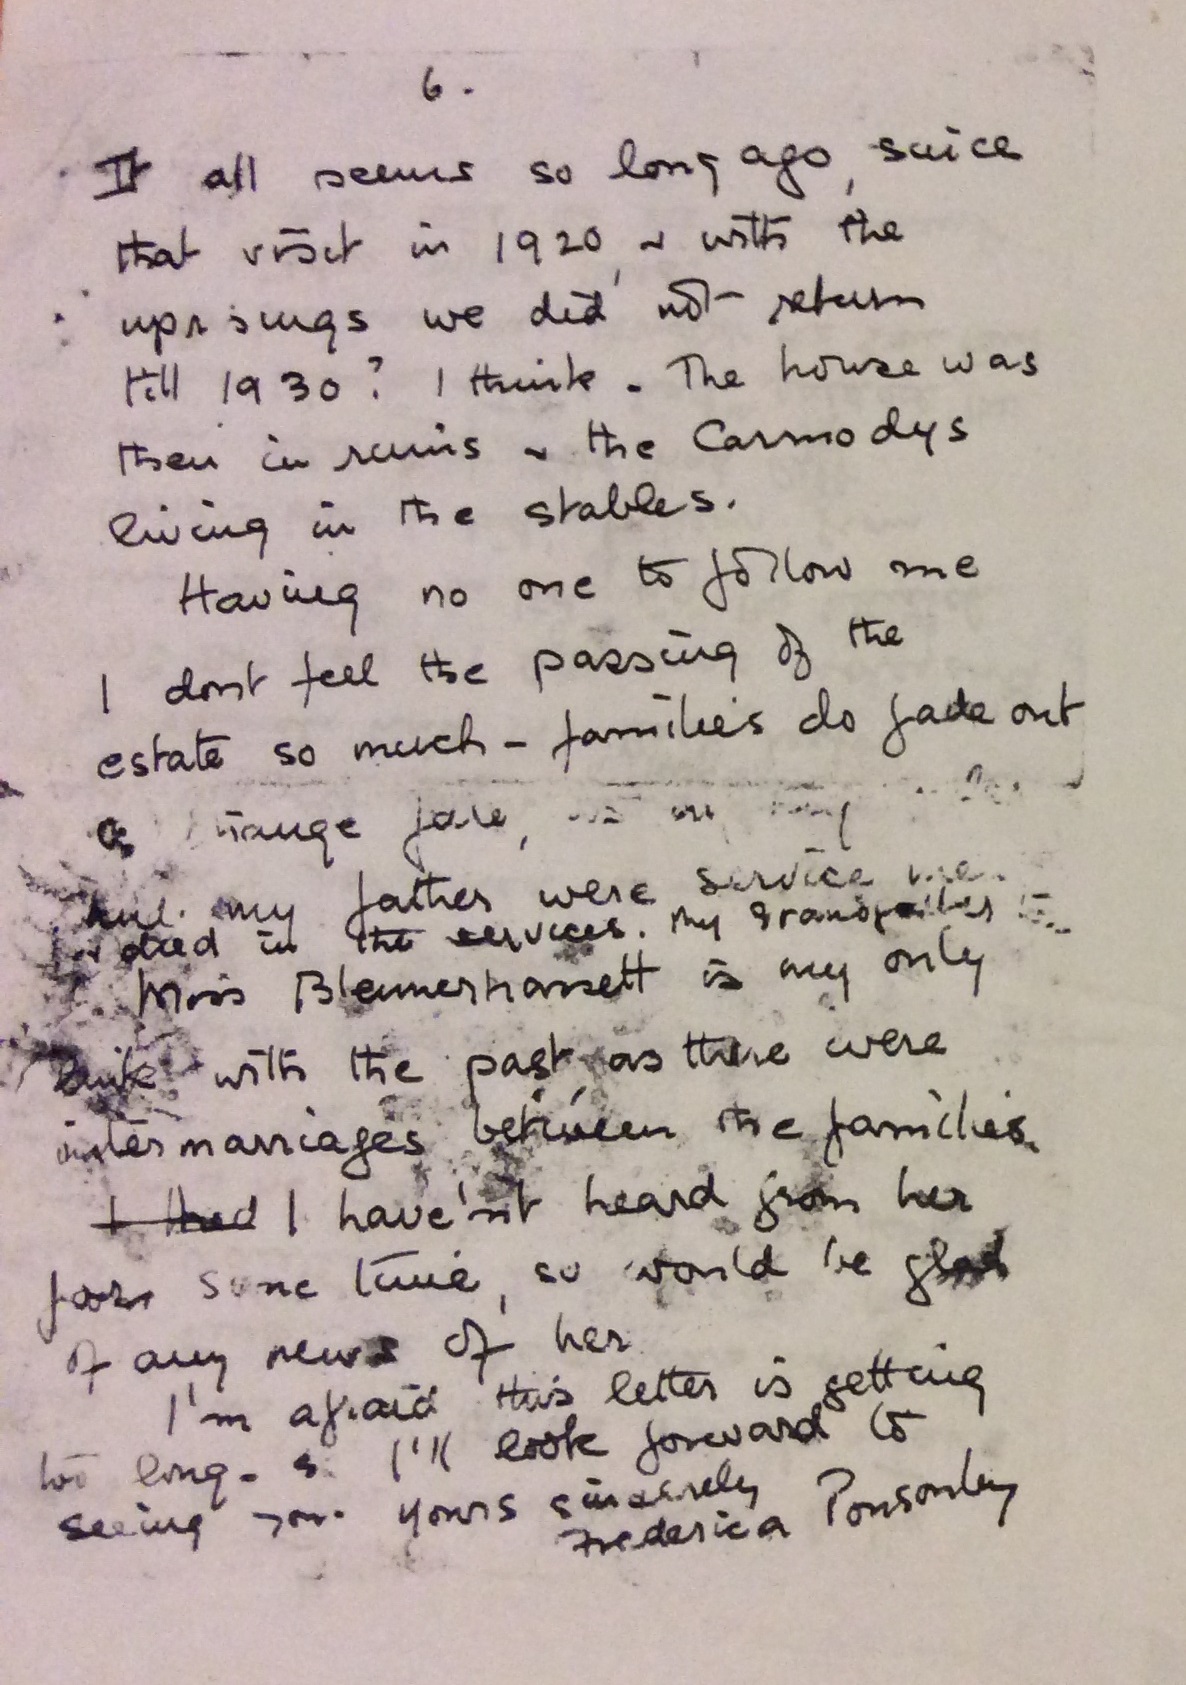 6.
It all seems so long ago, since
that visit in 1920, & with the
uprisings we did not return
till 1930? I think. The house was
then in ruins & the Carmodys
living in the stables.
Having no one to follow me
I dont feel the passing of the
estate so much - families do fade out
fate,
my father were service
died in the services. My Grandfather
Miss Blennerhassett is my only
link with the past as there were
intermarriages between the families.
I had I have'nt heard from her
for some time, so would be glad
of any news of her
I'm afraid this letter is getting
too long - I'll look forward to
seeing you. Yours sincerely
Frederica Ponsonby